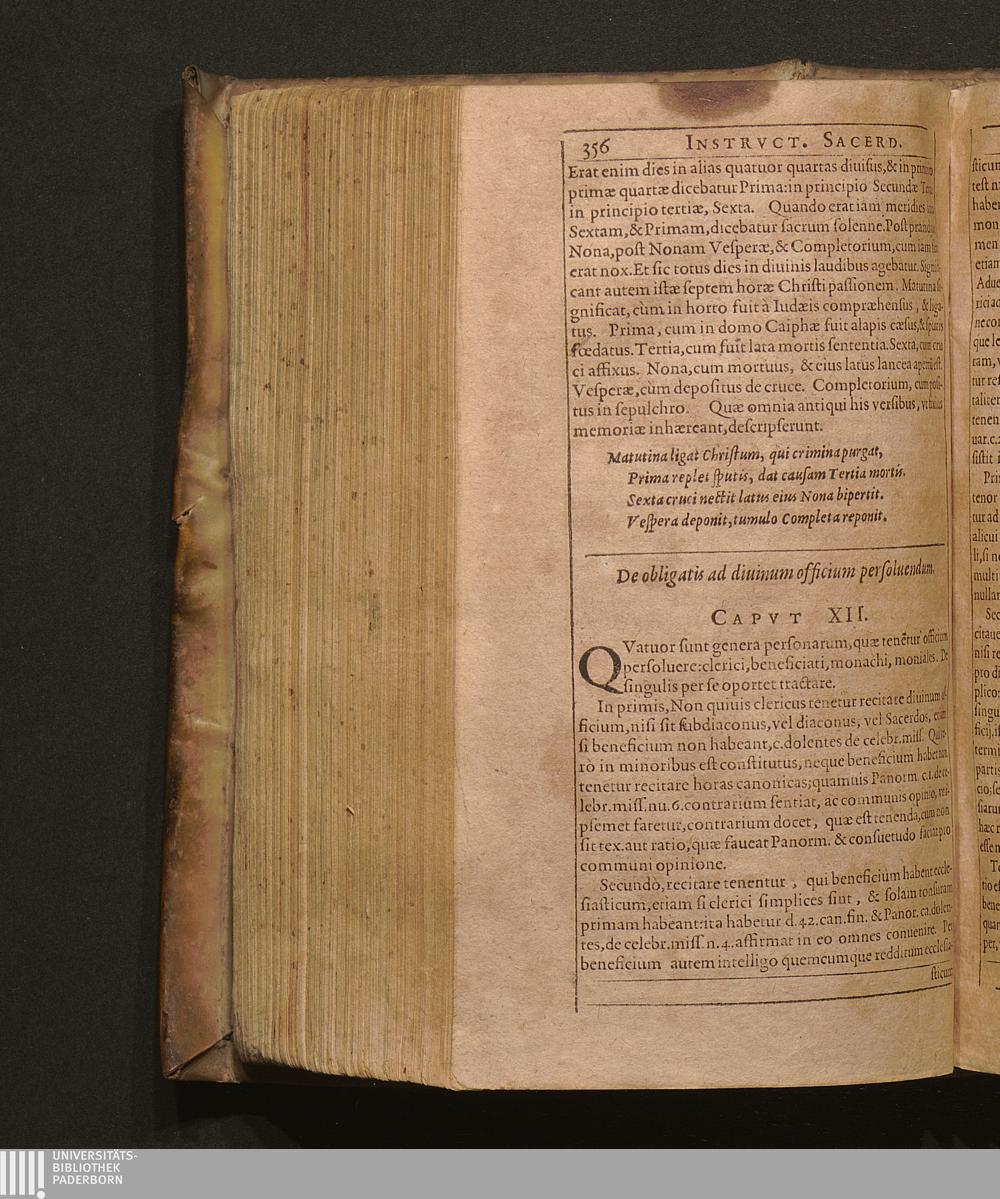 356 INSTRVCT. SACERD.
Erat enim dies in alias quatuor quartas diuisus, & in
primæ quartæ dicebatur Prima: in principio Secundæ
in principio tertiæ, Sexta. Quando erat iam meridies
Sextam, & Primam, dicebatur sacrum solenne. Post
Nona, post Nonam Vesperæ, & Completorium, cum iam
erat nox. Et sic totus dies in diuinis laudibus agebatur. Signifi-
cant autem istæ septem horæ Christi passionem. Matutina si-
gnificat, cùm in horto fuit à Iudæis compræhensus, & liga-
tus. Prima, cum in domo Caiphæ fuit alapis cæsus, & sputis
fœdatus. Tertia, cum fuit lata mortis sententia. Sexta, cum cru
ci affixus. Nona, cum mortuus, & eius latus lancea apertū est.
Vesperæ, cùm depositus de cruce. Completorium, cum posi-
tus in sepulchro. Quæ omnia antiqui his versibus, vt
memoriæ inhæreant, descripserunt.
Matutina ligat Christum, qui crimina purgat,
Prima replet sputis, dat causam Tertia mortis.
Sexta cruci nectit latus eius Nona bipertit.
Vespera deponit, tumulo Completa reponit.
De obligatis ad diuinum officium persoluendum.
CAPVT XII.
QVatuor sunt genera personarum, quæ tenētur officium
persoluere: clerici, beneficiati, monachi, moniales. De
singulis per se oportet tractare.
In primis, Non quiuis clericus tenetur recitare diuinum of-
ficium, nisi sit subdiaconus, vel diaconus, vel Sacerdos, etiam
si beneficium non habeant, c. dolentes de celebr. miss. Qui ve-
rò in minoribus est constitutus, neque beneficium habet non
tenetur recitare horas canonicas; quamuis Panorm. c. 1. de ce-
lebr. miss. nu. 6. contrarium sentiat, ac communis opinio, vt
psemet fatetur, contrarium docet, quæ est tenenda, cum non
sit tex. aut ratio, quæ faueat Panorm. & consuetudo faciat pro
communi opinione.
Secundò, recitare tenentur, qui beneficium habent eccle-
siasticum, etiam si clerici simplices sint, & solam tonsuram
primam habeant: ita habetur d. 42. can. fin. & Panor. ca. dolen-
tes, de celebr. miss. n. 4. affirmat in eo omnes conuenire. Per
beneficium autem intelligo quemcumque redditum ecclesia-
sticum
UNIVERSITÄTS-
BIBLIOTHEK
PADERBORN